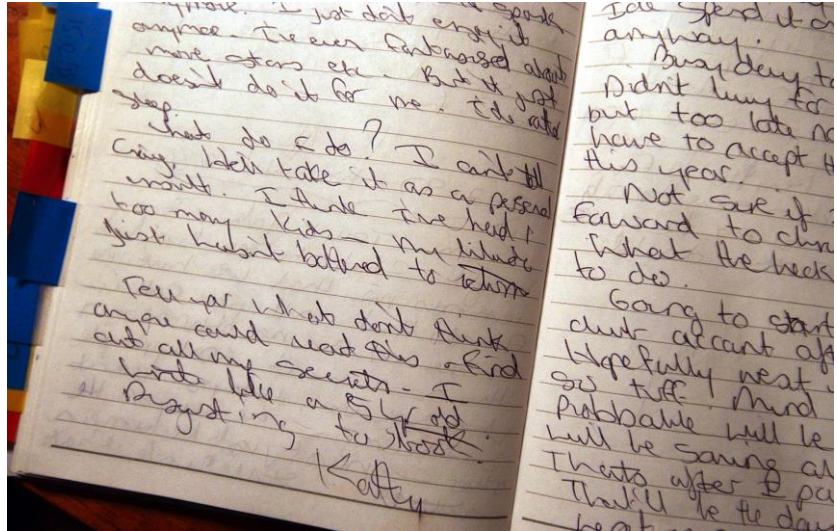 anymore. I just don't enjoy it
anymore. I've even fantasised about
more stars etc. But it just
doesn't do it for me. I'de rather
sleep.
What do I do? I can't tell
Craig, he'll take it as a personal
insult. I think I've had 1
too many kids - my libido
just hasn't bothered to return
Tell you what don't think
anyone could read this - find
out all my secrets - I
write like a 5 yr old
Disgusting to look.
Kathy
Ide spend it o
anyway.
Busy day to
Didn't hurry for
but too late no
have to accept th
this year.
Not sure if
forward to chr
What the heck
to do.
Going to start
club account aft
Hopefully next
so tuff. Mind
Probable will be
will be saving a
Thats after I pa
That'll be the da